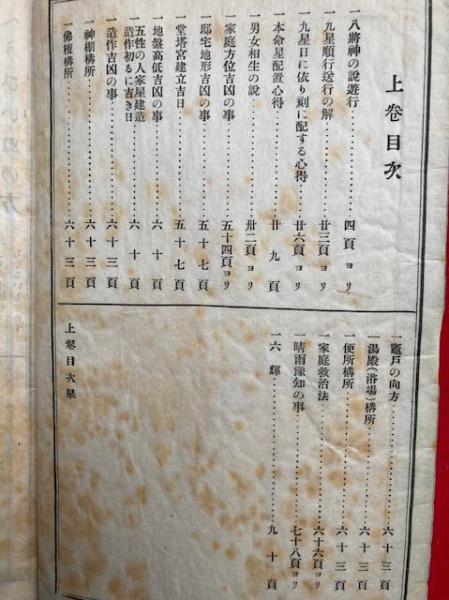 上卷目次
一八將神の說遊行………四頁ヨリ
一九星順行逆行の解………廿三頁ヨリ
一九星日に依り刻に配する心得………廿六頁ヨリ
一本命星配置心得………廿九頁
一男女相生の說………卅二頁ヨリ
一家庭方位吉凶の事………五十四頁ヨリ
一邸宅地形吉凶の事………五十七頁
一堂塔宮建立吉日………五十七頁
一地盤高低吉凶の事………六十頁
一五性の人家屋建造造作初るに吉き日………六十頁
一造作吉凶の事………六十三頁
一神棚構所………六十三頁
一佛壇構所………六十三頁
一竈戸の向方………六十三頁
一湯殿(浴場)構所………六十三頁
一便所構所………六十三頁
一家庭救治法………六十六頁ヨリ
一晴雨豫知の事………七十八頁ヨリ
一六輝………九十頁
上卷目次畢